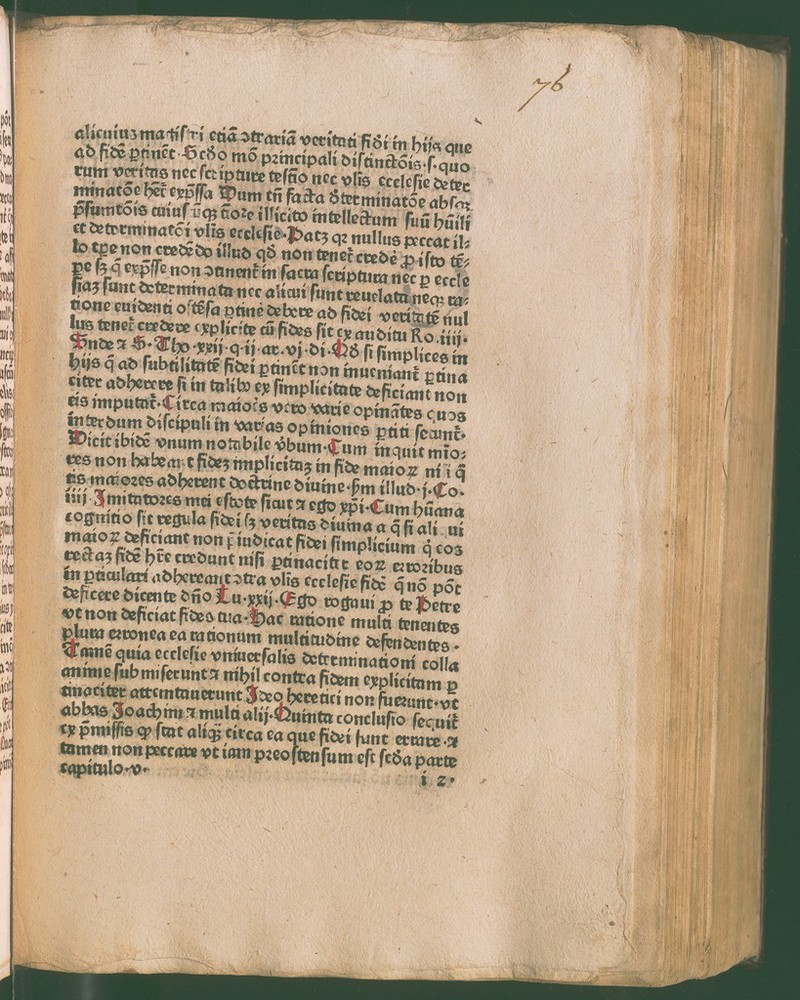 76
alicuiuꝫ magiſtri etiã ↄtrariã veritati fiði in hijs que
ad fidẽ ꝑtinẽt · Scðo mõ pꝛincipali diſtinctõis · ſ · quo
rum veritas nec ſcripture teſtĩo nec vl̃is eccleſie deter
minatõe hẽt exp̃ſſa Dum tñ facta ðterminatõe abſcꝫ
p̃ſumtõis cuiuſ ũqꝫ tĩoꝛe illicito intellectum ſuũ hũili
et determinatẽi vl̃is eccleſiẽ · Patꝫ qꝛ nullus peccat il⸗
lo tꝑe non credẽdo illud qð non tenet̃ credẽ ꝓ iſto tẽ⸗
ꝑe ſꝫ q̃ expſſe non ↄtinent̃ in ſacra ſcriptura nec ꝑ eccle
ſiaꝫ ſunt determinata nec alicui ſunt reuelata neqꝫ ra⸗
tione euidenti oſtẽſa ꝑtinẽ debere ad fidei veritatẽ nul
lus tenet̃ credere explicite cũ fides ſit ex auditu Ro · iiij ·
Unde ⁊ S · Tho · xxij · q · ij · ar · vj · di · Qð ſi ſimplices in
hijs q̃ ad ſubtilitatẽ fidei ꝑtinẽt non inueniant̃ ꝑtina
citer adherere ſi in talibꝰ ex ſimplicitate deficiant non
eis imputat̃ · Circa maioꝛes vero varie opinãtes quos
interdum diſcipuli in varias opiniones ꝑtiti ſecunt̃ ·
Dicit ibidẽ vnum notabile v̾bum · Cum inquit mĩo⸗
res non habeant fideꝫ implicitaꝫ in fide maioꝝ niſi q̃
tis maioꝛes adherent doctrine diuine · ẜm illud · j · Co ·
iiij · Imitatoꝛes mei eſtote ſicut ⁊ ego xp̃i · Cum hũana
cognitio ſit regula fidei ſꝫ veritas diuina a q̃ ſi ali ui
maioꝝ deficiant non p̃iudicat fidei ſimplicium q̇ eos
rectaꝫ fidẽ hr̃e credunt niſi ꝑtinacit̃ eoꝝ erroꝛibus
in ꝑticulari adhereant ↄtra vl̃is eccleſie fidẽ q̃ nõ põt
deficere dicente dño Lu · xxij · Ego rogaui ꝓ te Petre
vt non deficiat fides tua · Hac ratione multi tenentes
plura erronea ea rationum multitudine defendentes ·
Tamẽ quia eccleſie vniuerſalis determinationi colla
anime ſubmiſerunt ⁊ nihil contra fidem explicitam ꝑ
tinaciter attemtauerunt Ideo heretici non fuerunt · vt
abbas Joachim ⁊ multi alij · Quinta concluſio ſequit̃
ex p̃miſſis ꝙ ſtat aliqꝫ circa ea que fidei ſunt errare · ⁊
tamen non peccare vt iam pꝛeoſtenſum eſt ſcða parte
capitulo · v ·
i 2 ·